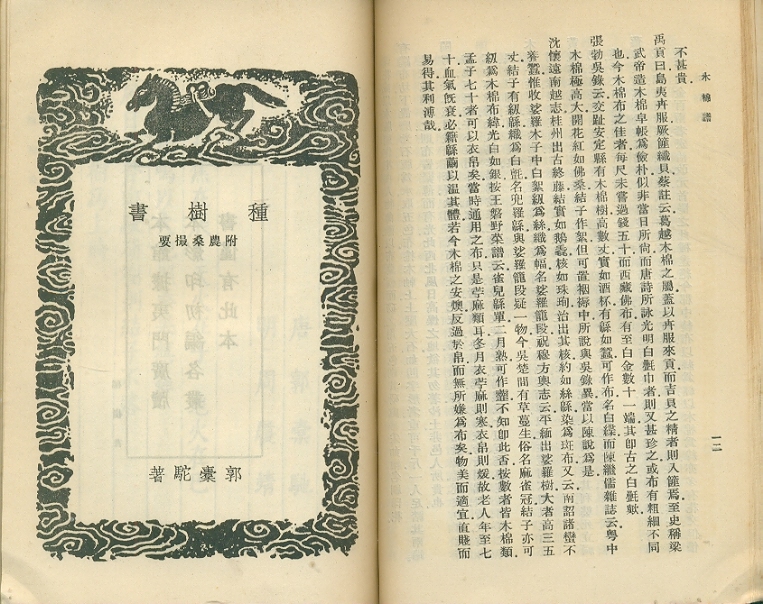 木棉譜
一二
不甚貴.
禹貢曰島夷卉服厥篚織貝蔡註云葛越木棉之屬蓋以卉服來貢而吉貝之精者則入篚焉至史稱梁
武帝造木棉皁帳爲儉朴似非當日所尙而唐詩所詠光明白㲲巾者則又甚珍之或布有粗細不同
也今木棉布之佳者每尺未嘗過錢五十而西藏佛布有至白金數十一端其卽古之白㲲歟.
張勃吳錄云交趾安定縣有木棉樹高數丈實如酒杯有緜如蠶可作布名白緤而陳繼儒雜誌云粤中
木棉極高大開花紅如佛桑結子作絮但可置裀褥中所說與吳錄異當以陳說爲是.
沈懷遠南越志桂州出古終藤結實如鵝毳核如珠珣治出其核約如絲緜染爲斑布又云南詔諸蠻不
養蠶惟收娑羅木子中白絮紉爲絲織爲幅名娑羅籠段祝穆方輿志云平緬出娑羅樹大者高三五
丈結子有紉緜織爲白氈名兜羅緜與娑羅籠段疑一物今吳楚間有草蔓生俗名麻雀冠結子亦可
紉爲木棉布緯光白如銀按王磐野菜譜云雀兒緜單二月熟可作虀不知卽此否按數者皆木棉類.
孟子七十者可以衣帛矣當時通用之布只是苧麻類耳冬月衣苧麻則寒衣帛則煖故老人年至七
十血氣旣衰必藉緜繭以溫其體若今木棉之安燠反過於帛而無所嫌爲布矣物美而適宜直賤而
易得其利溥哉.
種樹書
附農桑撮要
郭橐駝著